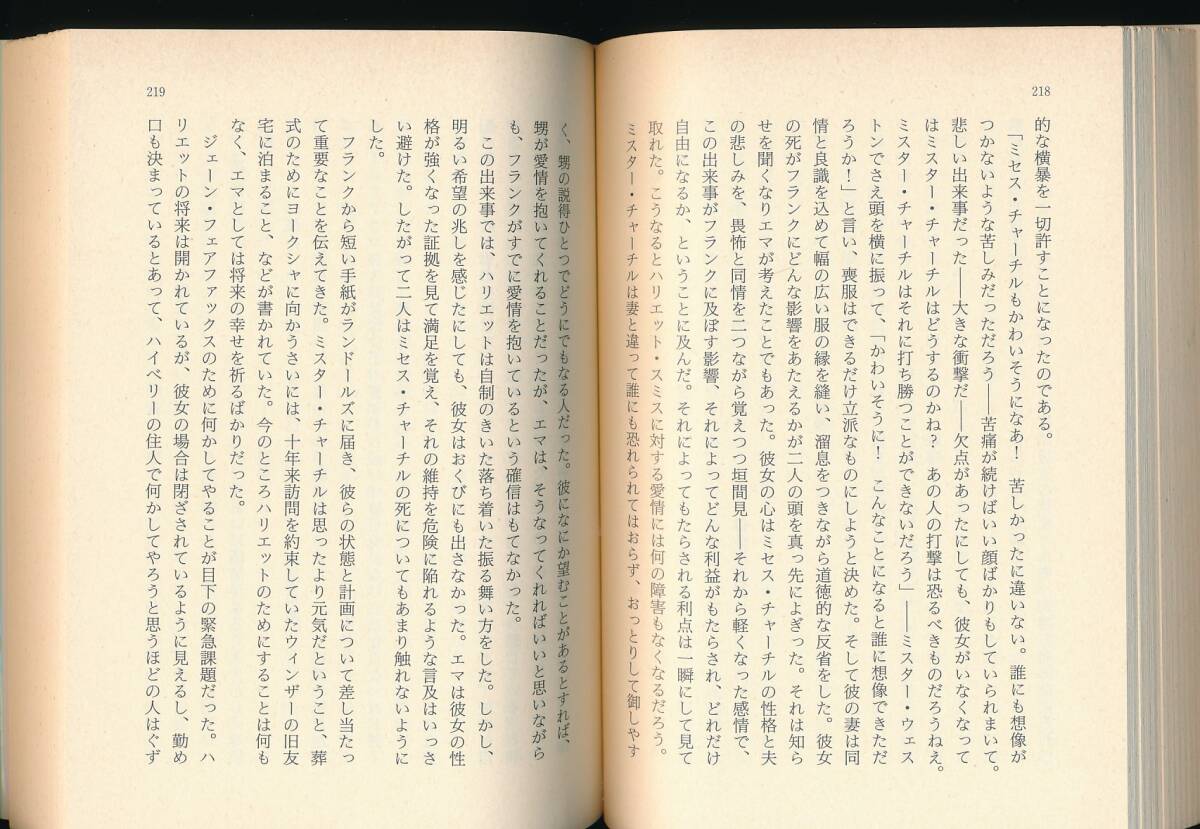 218
的な横暴を一切許すことになったのである。
「ミセス・チャーチルもかわいそうになあ！　苦しかったに違いない。誰にも想像が
つかないような苦しみだっただろう――苦痛が続けばいい顔ばかりもしていられまいて。
悲しい出来事だった――大きな衝撃だ――欠点があったにしても、彼女がいなくなって
はミスター・チャーチルはどうするのかね？　あの人の打撃は恐るべきものだろうねえ。
ミスター・チャーチルはそれに打ち勝つことができないだろう」――ミスター・ウェス
トンでさえ頭を横に振って、「かわいそうに！　こんなことになると誰に想像できただ
ろうか！」と言い、喪服はできるだけ立派なものにしようと決めた。そして彼の妻は同
情と良識を込めて幅の広い服の縁を縫い、溜息をつきながら道徳的な反省をした。彼女
の死がフランクにどんな影響をあたえるかが二人の頭を真っ先によぎった。それは知ら
せを聞くなりエマが考えたことでもあった。彼女の心はミセス・チャーチルの性格と夫
の悲しみを、畏怖と同情を二つながら覚えつつ垣間見――それから軽くなった感情で、
この出来事がフランクに及ぼす影響、それによってどんな利益がもたらされ、どれだけ
自由になるか、ということに及んだ。それによってもたらされる利点は一瞬にして見て
取れた。こうなるとハリエット・スミスに対する愛情には何の障害もなくなるだろう。
ミスター・チャーチルは妻と違って誰にも恐れられてはおらず、おっとりして御しやす
219
く、甥の説得ひとつでどうにでもなる人だった。彼になにか望むことがあるとすれば、
甥が愛情を抱いてくれることだったが、エマは、そうなってくれればいいと思いながら
も、フランクがすでに愛情を抱いているという確信はもてなかった。
この出来事では、ハリエットは自制のきいた落ち着いた振る舞い方をした。しかし、
明るい希望の兆しを感じたにしても、彼女はおくびにも出さなかった。エマは彼女の性
格が強くなった証拠を見て満足を覚え、それの維持を危険に陥れるような言及はいっさ
い避けた。したがって二人はミセス・チャーチルの死についてもあまり触れないように
した。
フランクから短い手紙がランドールズに届き、彼らの状態と計画について差し当たっ
て重要なことを伝えてきた。ミスター・チャーチルは思ったより元気だということ、葬
式のためにヨークシャに向かうさいには、十年来訪問を約束していたウィンザーの旧友
宅に泊まること、などが書かれていた。今のところハリエットのためにすることは何も
なく、エマとしては将来の幸せを祈るばかりだった。
ジェーン・フェアファックスのために何かしてやることが目下の緊急課題だった。ハ
リエットの将来は開かれているが、彼女の場合は閉ざされているように見えるし、勤め
口も決まっているとあって、ハイベリーの住人で何かしてやろうと思うほどの人はぐず